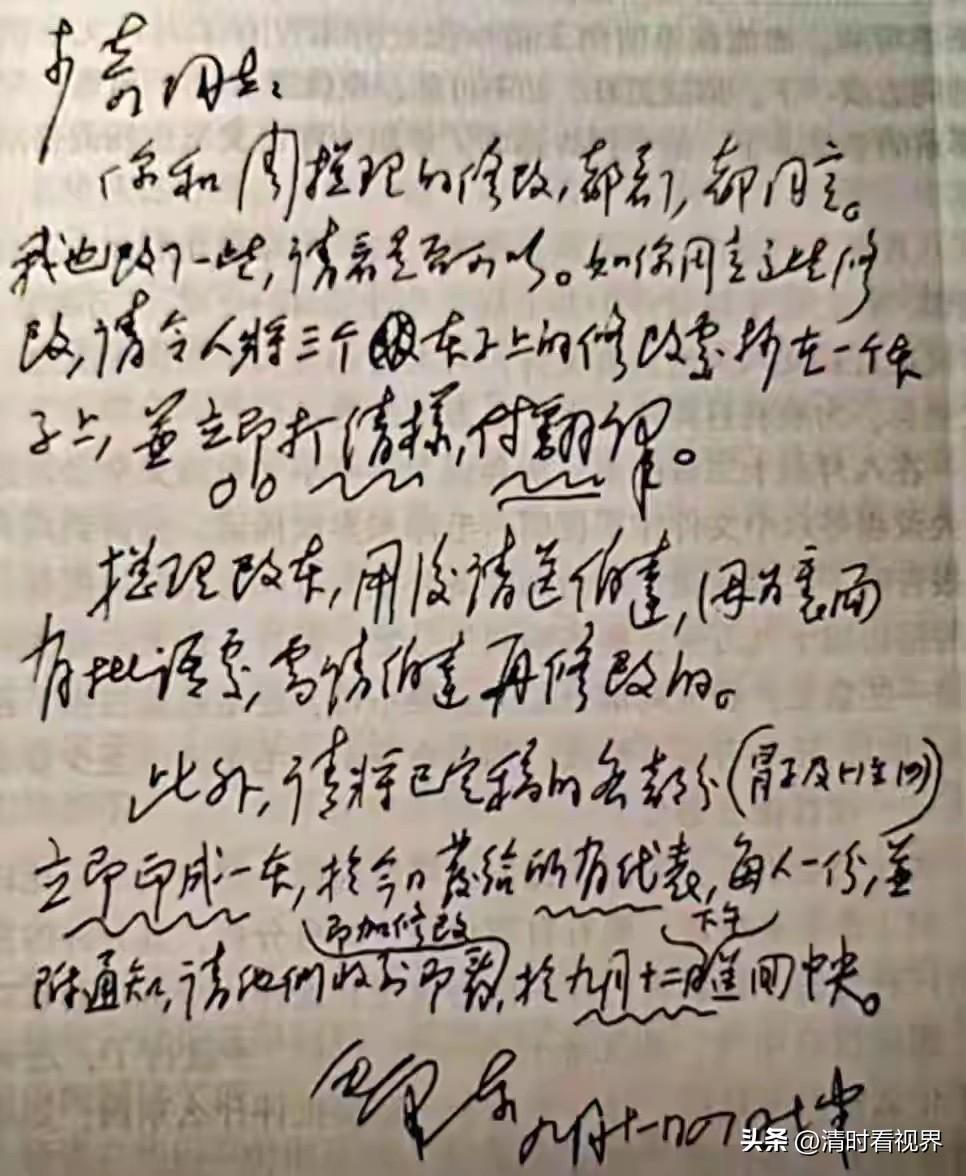 少奇同志：
你和周总理的修改，都看了，都同意。
我也改了一些，请看是否可以。如你同意这些修
改，请令人将三个本子上的修改处抄在一个本
子上，并立即打清样，付翻译。
总理改本，用后请送伯达，因为里面
有些语，需请伯达再修改的。
此外，请将已定稿的各部分
立即印成一本，于今日发给所有代表，每人一份，並
即加修改 下午
附通知，请他们收到即看，于九月十二日退回中央。
泽东 九月十一日
头条 @清时看视界